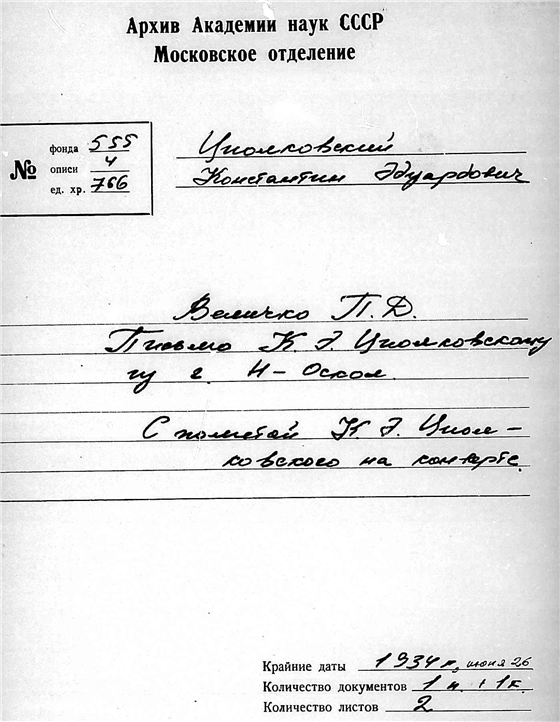 Архив Академии наук СССР
Московское отделение
№
фонда 555
описи 4
ед. хр. 766
Циолковский
Константин Эдуардович
Величко П. Д.
Письмо К. Э. Циолковскому
из г. Н-Оскол.
С пометой К. Э. Циол-
ковского на конверте.
Крайние даты 1934 г., июня 26
Количество документов 1 п. + 1 к.
Количество листов 2